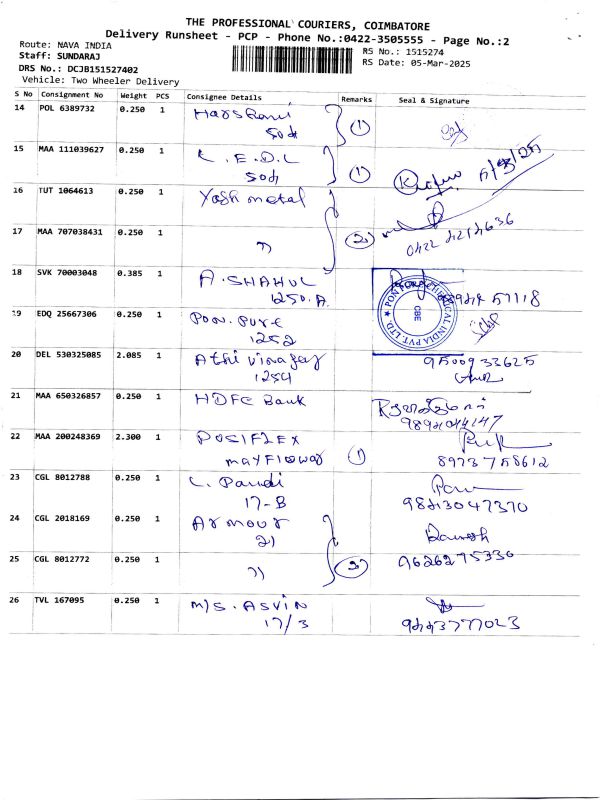 THE PROFESSIONAL COURIERS, COIMBATORE
Delivery Runsheet - PCP - Phone No.:0422-3505555 - Page No.:2
Route: NAVA INDIA
Staff: SUNDARAJ
DRS No.: DCJB151527402
Vehicle: Two Wheeler Delivery
RS No.: 1515274
RS Date: 05-Mar-2025
S No Consignment No Weight PCS Consignee Details Remarks Seal & Signature
14 POL 6389732 0.250 1 1
15 MAA 111039627 0.250 1 K.E.D.L 1
16 TUT 1064613 0.250 1 Yash metal
17 MAA 707038431 0.250 1 2
18 SVK 70003048 0.385 1 A.SHAHUL
1250.A.
PON PURE CHEMICAL INDIA PVT. LTD.
CBE
19 EDQ 25667306 0.250 1 Pon. Pure
1252
20 DEL 530325085 2.085 1 Athi vinayag 9500933625
1254
21 MAA 650326857 0.250 1 HDFC Bank
22 MAA 200248369 2.300 1 POSIFLEX 1
mayflower 8973758612
23 CGL 8012788 0.250 1 C. Pandi
17-B 9843047370
24 CGL 2018169 0.250 1 Armour
21
25 CGL 8012772 0.250 1 9626275330
26 TVL 167095 0.250 1 M/S. ASVIN
17/3 9443777023